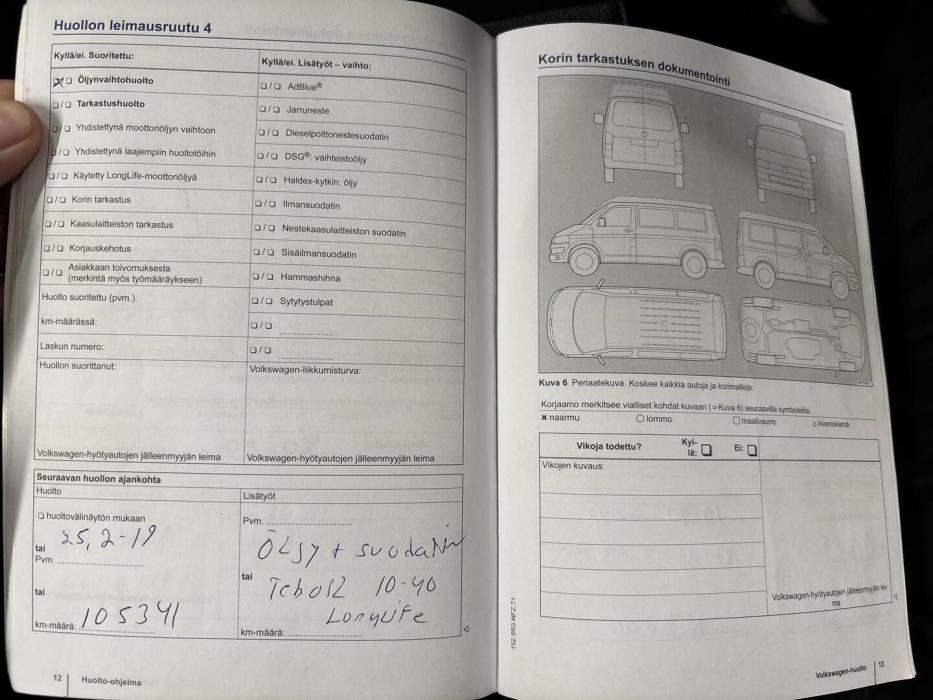 Huollon leimausruutu 4
Kyllä/ei. Suoritettu:
☒/☐ Öljynvaihtohuolto
☐/☐ Tarkastushuolto
☐/☐ Yhdistettynä moottoriöljyn vaihtoon
☐/☐ Yhdistettynä laajempiin huoltotöihin
☐/☐ Käytetty LongLife-moottoriöljyä
☐/☐ Korin tarkastus
☐/☐ Kaasulaitteiston tarkastus
☐/☐ Korjauskehotus
☐/☐ Asiakkaan toivomuksesta
(merkintä myös työmääräykseen)
Huolto suoritettu (pvm.):
km-määrässä:
Laskun numero:
Huollon suorittanut:
Volkswagen-hyötyautojen jälleenmyyjän leima
Kyllä/ei. Lisätyöt – vaihto:
☐/☐ AdBlue®
☐/☐ Jarruneste
☐/☐ Dieselpolttonestesuodatin
☐/☐ DSG®: vaihteistoöljy
☐/☐ Haldex-kytkin: öljy
☐/☐ Ilmansuodatin
☐/☐ Nestekaasulaitteiston suodatin
☐/☐ Sisäilmansuodatin
☐/☐ Hammashihna
☐/☐ Sytytystulpat
☐/☐ ....................
☐/☐ ....................
Volkswagen-liikkumisturva:
Volkswagen-hyötyautojen jälleenmyyjän leima
Seuraavan huollon ajankohta
Huolto
☐ huoltovälinäytön mukaan
25, 2-19
tai
Pvm. ....................
tai
105341
km-määrä: ....................
Lisätyöt
Pvm. ....................
Öljy + suodatin
tai
10-40
LongLife
km-määrä: ....................
12 Huolto-ohjelma
Korin tarkastuksen dokumentointi
Kuva 6 Periaatekuva. Koskee kaikkia autoja ja korimalleja.
Korjaamo merkitsee vialliset kohdat kuvaan (⇒Kuva 6) seuraavilla symboleilla:
✖ naarmu ○ lommo ☐ maalivaurio △ kiveniskemä
Vikoja todettu? Kyl-
lä: ☐ Ei: ☐
Vikojen kuvaus:
Volkswagen-hyötyautojen jälleenmyyjän lei-
ma
152.5R3.NFZ.71
Volkswagen-huolto 13